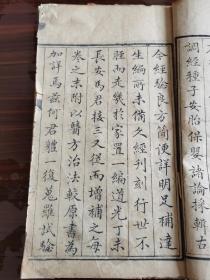 調經種子安胎保嬰諸論採輯古
今經驗良方簡便詳明足補達
生編所未備久經刊刻行世不
脛而走幾於家置一編道光丁未
長安馬君接三又從而增補之每
卷之末附以醫方治法較原書為
加詳焉茲何君體一復蒐羅試驗